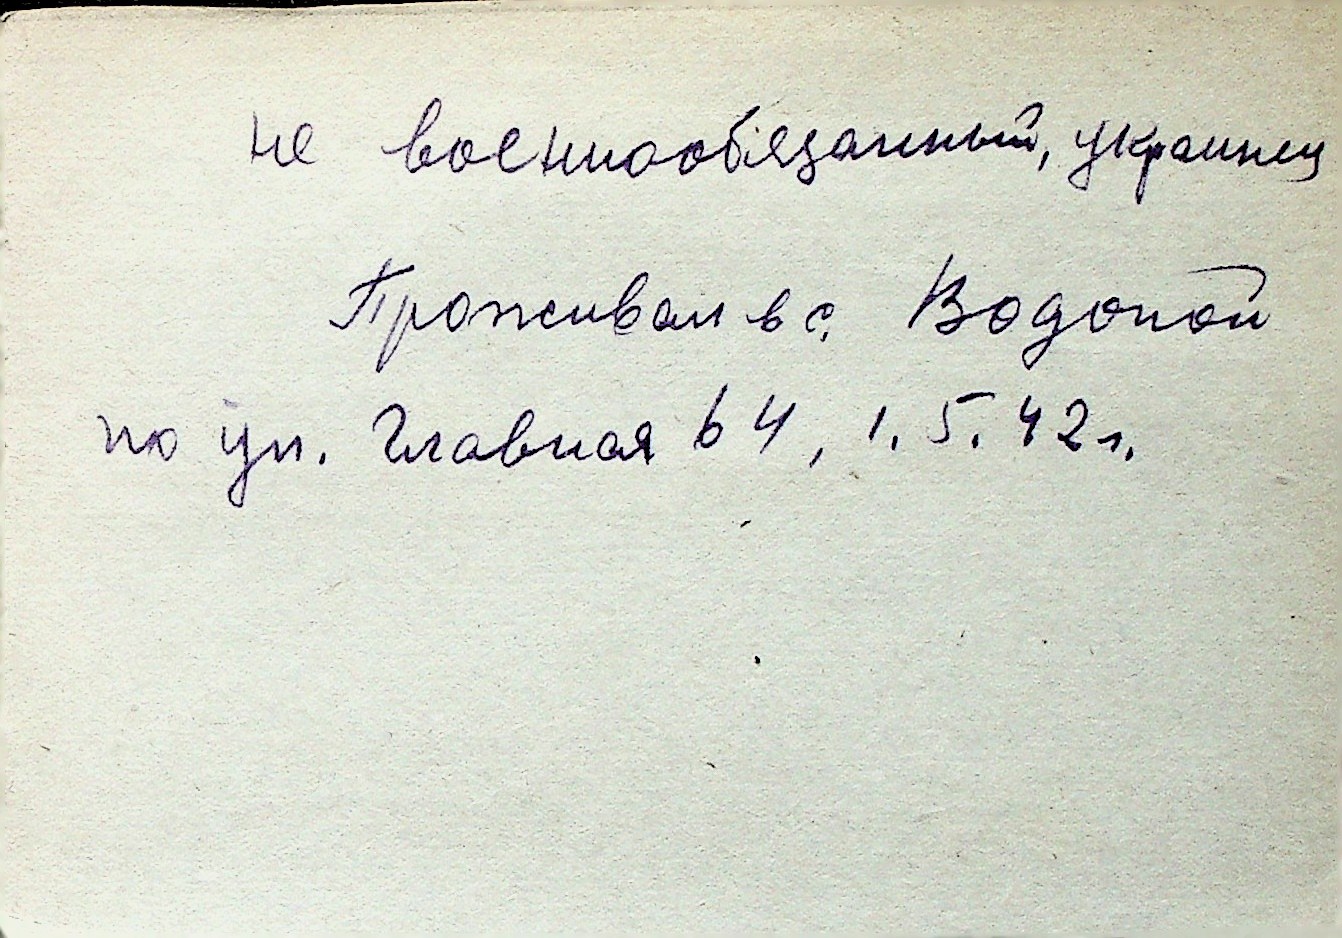 не военнообязанный, украинец
Проживал в с. Водопой
по ул. Главная 64, 1.5.42г.